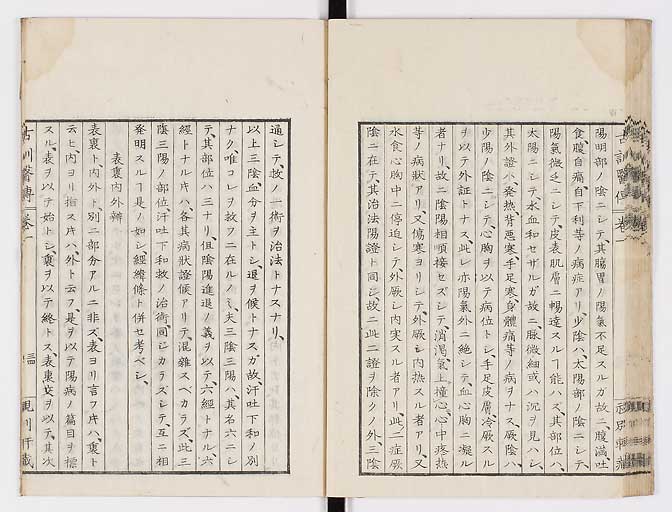 陽明部ノ陰ニシテ、其腸胃ノ陽氣不足スルガ故ニ、腹滿吐
食、腹自痛、自下利等ノ病症アリ、少陰ハ、太陽部ノ陰ニシテ、
陽氣微乏ニシテ、皮表肌膚ニ暢達スルヿ能ハズ、其部位ハ、
太陽ニシテ、水血和セザルガ故ニ、脉微細或ハ沉ヲ見ハシ、
其外證ハ發熱背惡寒、手足寒、身體痛等ノ病ヲナス、厥陰ハ、
少陽ノ陰ニシテ、心胸ヲ以テ病位トシ、手足皮膚、冷厥スル
ヲ以テ外証トナス、此レ亦陽氣外ニ絶シテ、血心胸ニ凝ル
者ナリ、故ニ陰陽相順接セズシテ、消渇、氣上撞心、心中疼熱
等ノ病狀アリ、又傷寒ヨリシテ、外厥シ内熱スル者アリ、又
水食心胸中ニ停迫シテ、外厥シ内実スル者アリ、此二症厥
陰ニ在テ、其治法陽證ト同シ、故ニ此二證ヲ除クノ外、三陰
通シテ、救ノ一術ヲ治法トナスナリ、
以上三陰血分ヲ主トシ、退ヲ候トナスガ故、汗吐下和ノ別
ナク、唯コレヲ救フニ在ルノミ、夫三陰三陽ハ、其名六ニシ
テ、其部位ハ三ナリ、但陰陽進退ノ義ヲ以テ、六經トナル、六
經トナル片ハ、各其病狀證候アリテ、混雜スベカラズ、此三
陰三陽ノ部位、汗吐下和救ノ治術、同シカラズシテ、互ニ相
發明スルヿ是ノ如シ、經緯條ト併セ考ベシ、
表裏内外辨
表裏ト、内外ト、別ニ二部分アルニ非ズ、表ヨリ言フ片ハ、裏ト
云ヒ、内ヨリ指ス片ハ、外ト云フ、是ヲ以テ陽病ノ篇目ヲ標
スル、表ヲ以テ始トシ、裏ヲ以テ終トス、表裏交ヲ以テ、其次
古訓醫傳 卷一